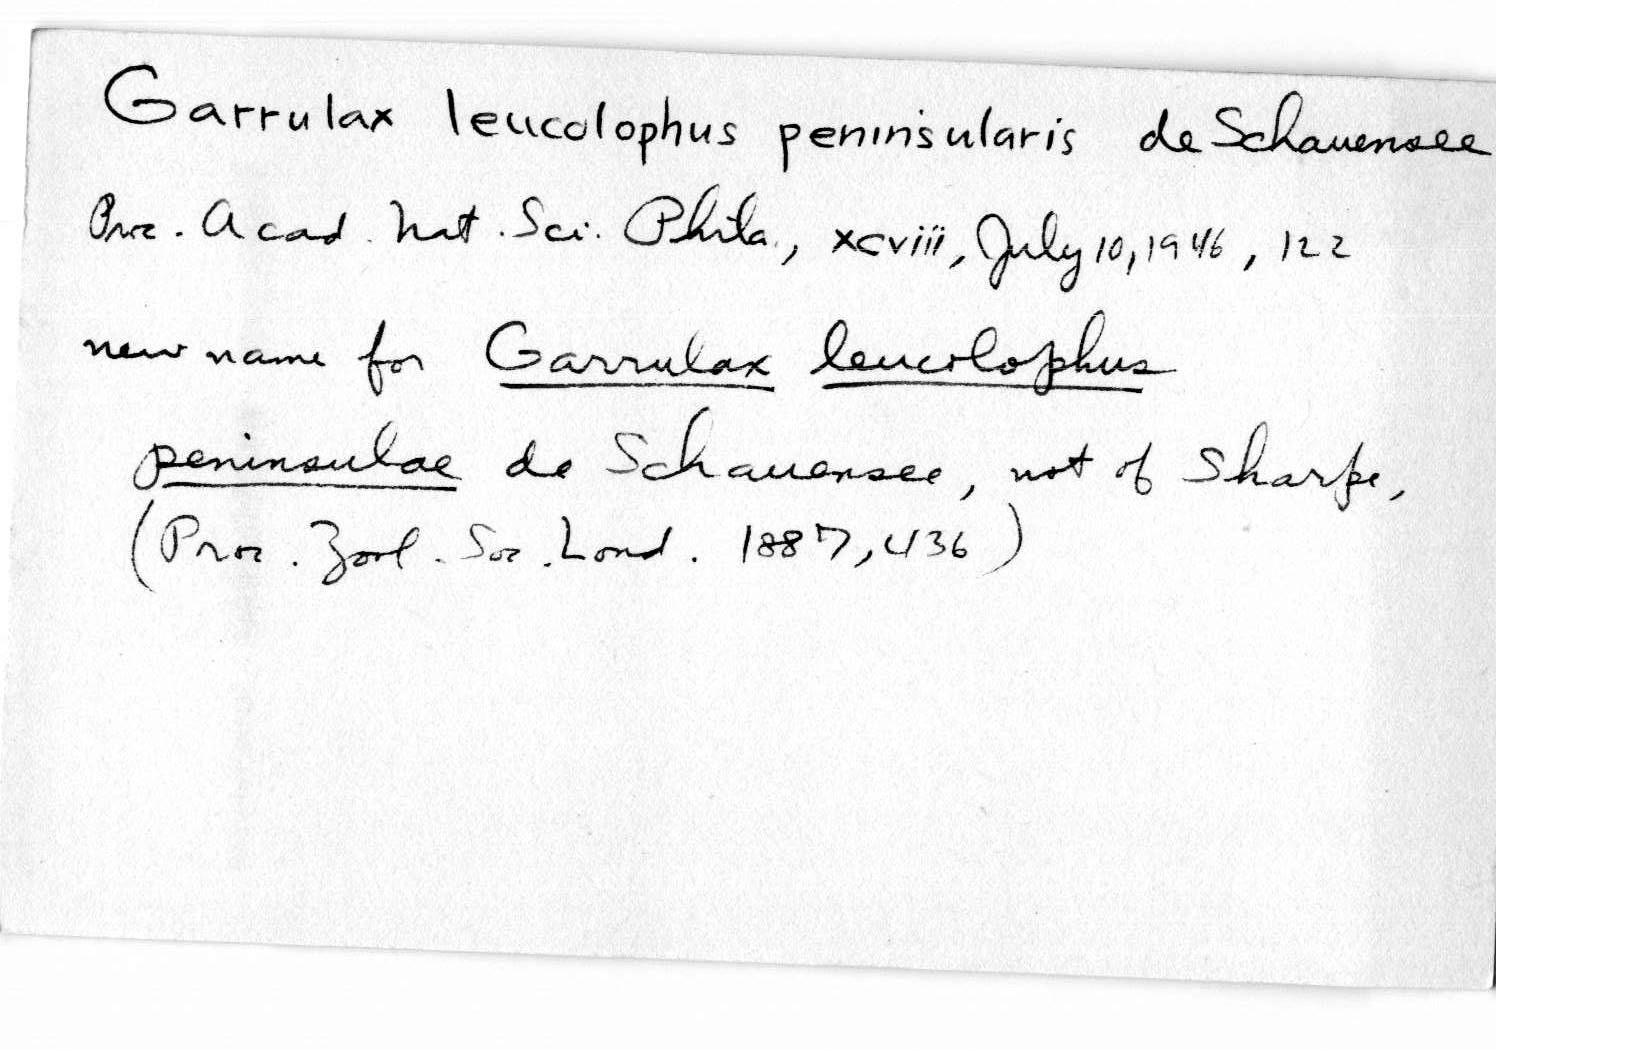 Garrulax leucolophus peninsularis de Schauensee
Proc. Acad. Nat. Sci. Phila., xcviii, July 10, 1946, 122
new name for Garrulax leucolophus
peninsulae de Schauensee, not of Sharpe,
(Proc. Zool. Soc. Lond. 1887, 436)